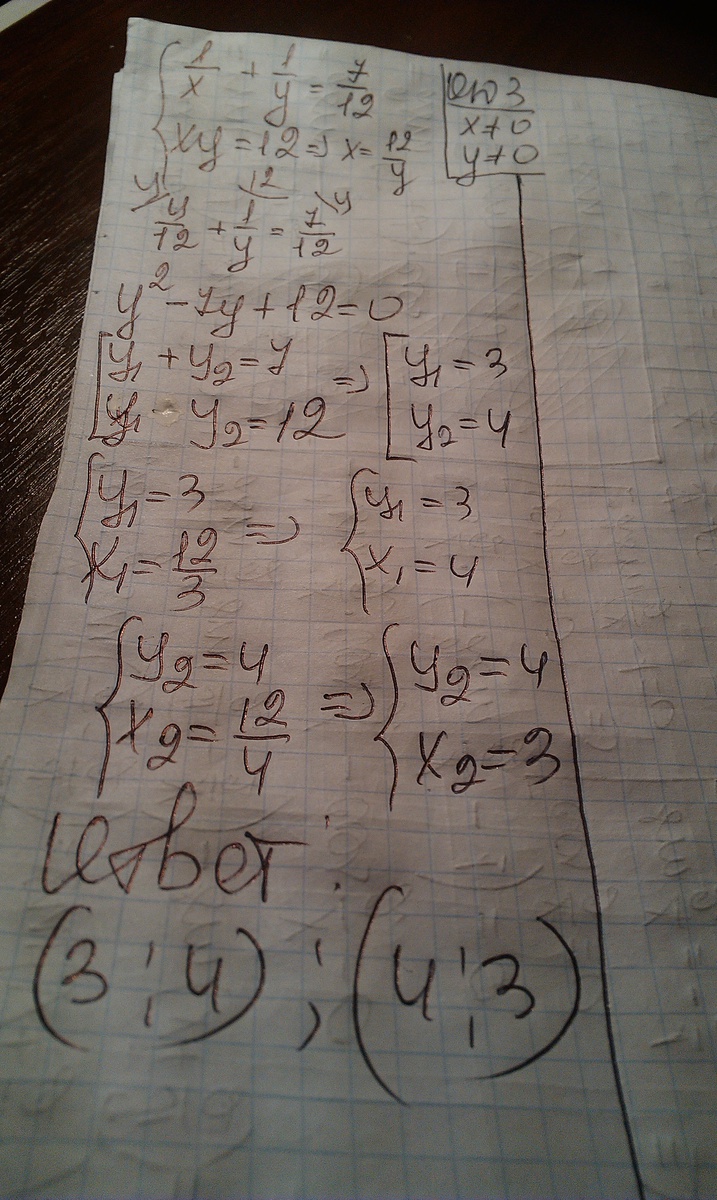 1/x + 1/y = 7/12
xy = 12 => x = 12/y
ОДЗ
x ≠ 0
y ≠ 0
y/12 + 1/y = 7/12
y² - 7y + 12 = 0
y₁ + y₂ = 7
y₁ · y₂ = 12 => y₁ = 3
y₂ = 4
y₁ = 3
x₁ = 12/3 => y₁ = 3
x₁ = 4
y₂ = 4
x₂ = 12/4 => y₂ = 4
x₂ = 3
Ответ:
(3; 4); (4; 3)